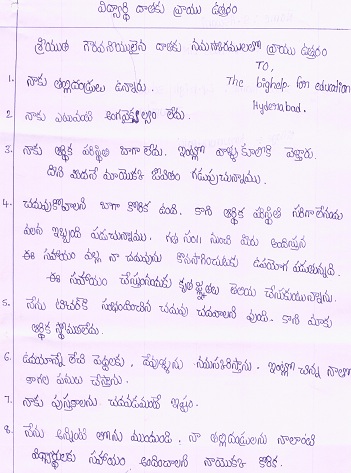 విద్యార్థి దాతకు వ్రాయు ఉత్తరం
శ్రీయుత గౌరవనీయులైన దాతకు నమస్కారములతో వ్రాయు ఉత్తరం
TO,
The bighelp for education
Hyderabad.
1. నాకు తల్లిదండ్రులు ఉన్నారు.
2 నాకు ఎటువంటి అంగవైకల్యం లేదు.
3. నాకు ఆర్థిక పరిస్థితి బాగా లేదు. ఇంట్లో వాళ్ళు కూలికి వెళ్తారు.
దాని మీదనే మాయొక్క జీవితం గడుపుచున్నాము.
4. చదువుకోవాలని బాగా కోరిక ఉంది. కాని ఆర్థిక పరిస్థితి సరిగా లేనందు
వలన ఇబ్బంది పడుచున్నాము. గత సం॥ నుంచి మీరు అందిస్తున్న
ఈ సహాయం వల్ల నా చదువును కొనసాగించుటకు ఉపయోగ పడుతున్నది.
ఈ సహాయం చేస్తున్నందుకు కృతజ్ఞతలు తెలియ చేసుకుంటున్నాను.
5. నేను టీచర్‌కి సంబంధించిన చదువు చదవాలని వుంది. కాని మాకు
ఆర్థిక స్థోమతలేదు.
6. ఉదయాన్నే లేచి పెద్దలకు, దేవుళ్ళను నమస్కరిస్తాను. ఇంట్లో చిన్న నాతో
కాగల పనులు చేస్తాను.
7. నాకు పుస్తకాలను చదవడమంటే ఇష్టం.
8. నేను అన్నింటి లోను ముందుండి, నా తల్లిదండ్రులను నాలాంటి
విద్యార్థులకు సహాయం అందించాలని నాయొక్క కోరిక.